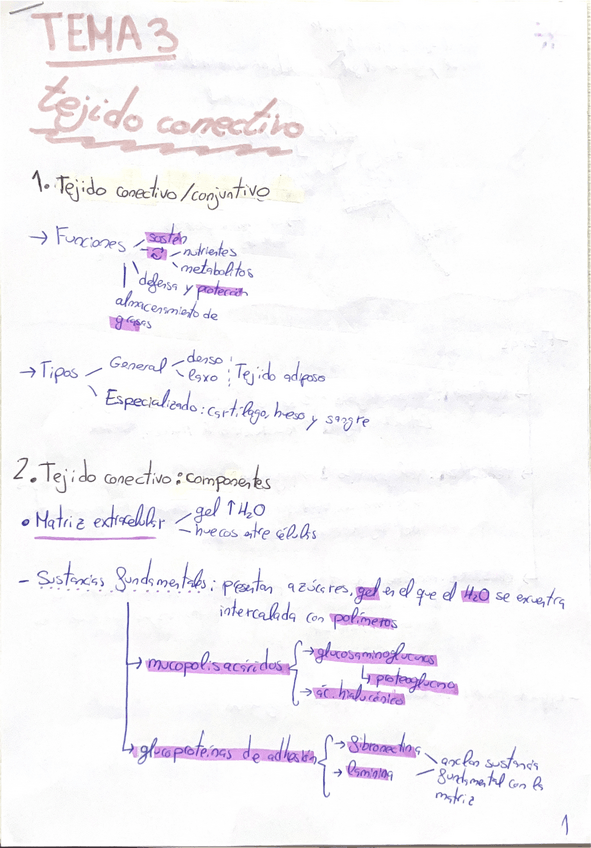 TEMA 3
tejido conectivo
1. Tejido conectivo/conjuntivo
→ Funciones
sostén
nutrientes
metabolitos
defensa y protección
almacenamiento de
grasas
→ Tipos
General
denso
laxo
Tejido adiposo
Especializado: cartílago, hueso y sangre
2. Tejido conectivo: componentes
• Matriz extracelular
gel ↑ H2O
huecos entre células
- Sustancias fundamentales: presentan azúcares, gel en el que el H2O se encuentra
intercalada con polímeros
→ mucopolisacáridos
→ glucosaminoglucanos
↳ proteoglucano
→ ác. hialurónico
→ glucoproteínas de adhesión
→ fibronectina
→ laminina
anclan sustancia
fundamental con la
matriz
1